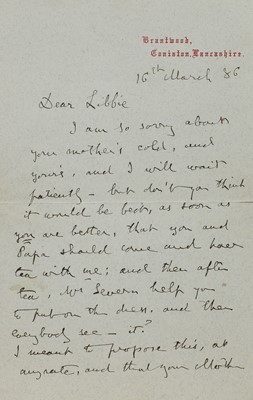 Brantwood,
Coniston, Lancashire.
16th March 86
Dear Libbie
I am so sorry about
your mother's cold, and
yours, and I will wait
patiently - but don't you think
it would be best, as soon as
you are better, that you and
Papa should come and have
tea with me; and then after
tea, Mrs Severn help you
to put on the dress. and then
Everybody see - it?
I meant to propose this, at
anyrate, and that your Mother